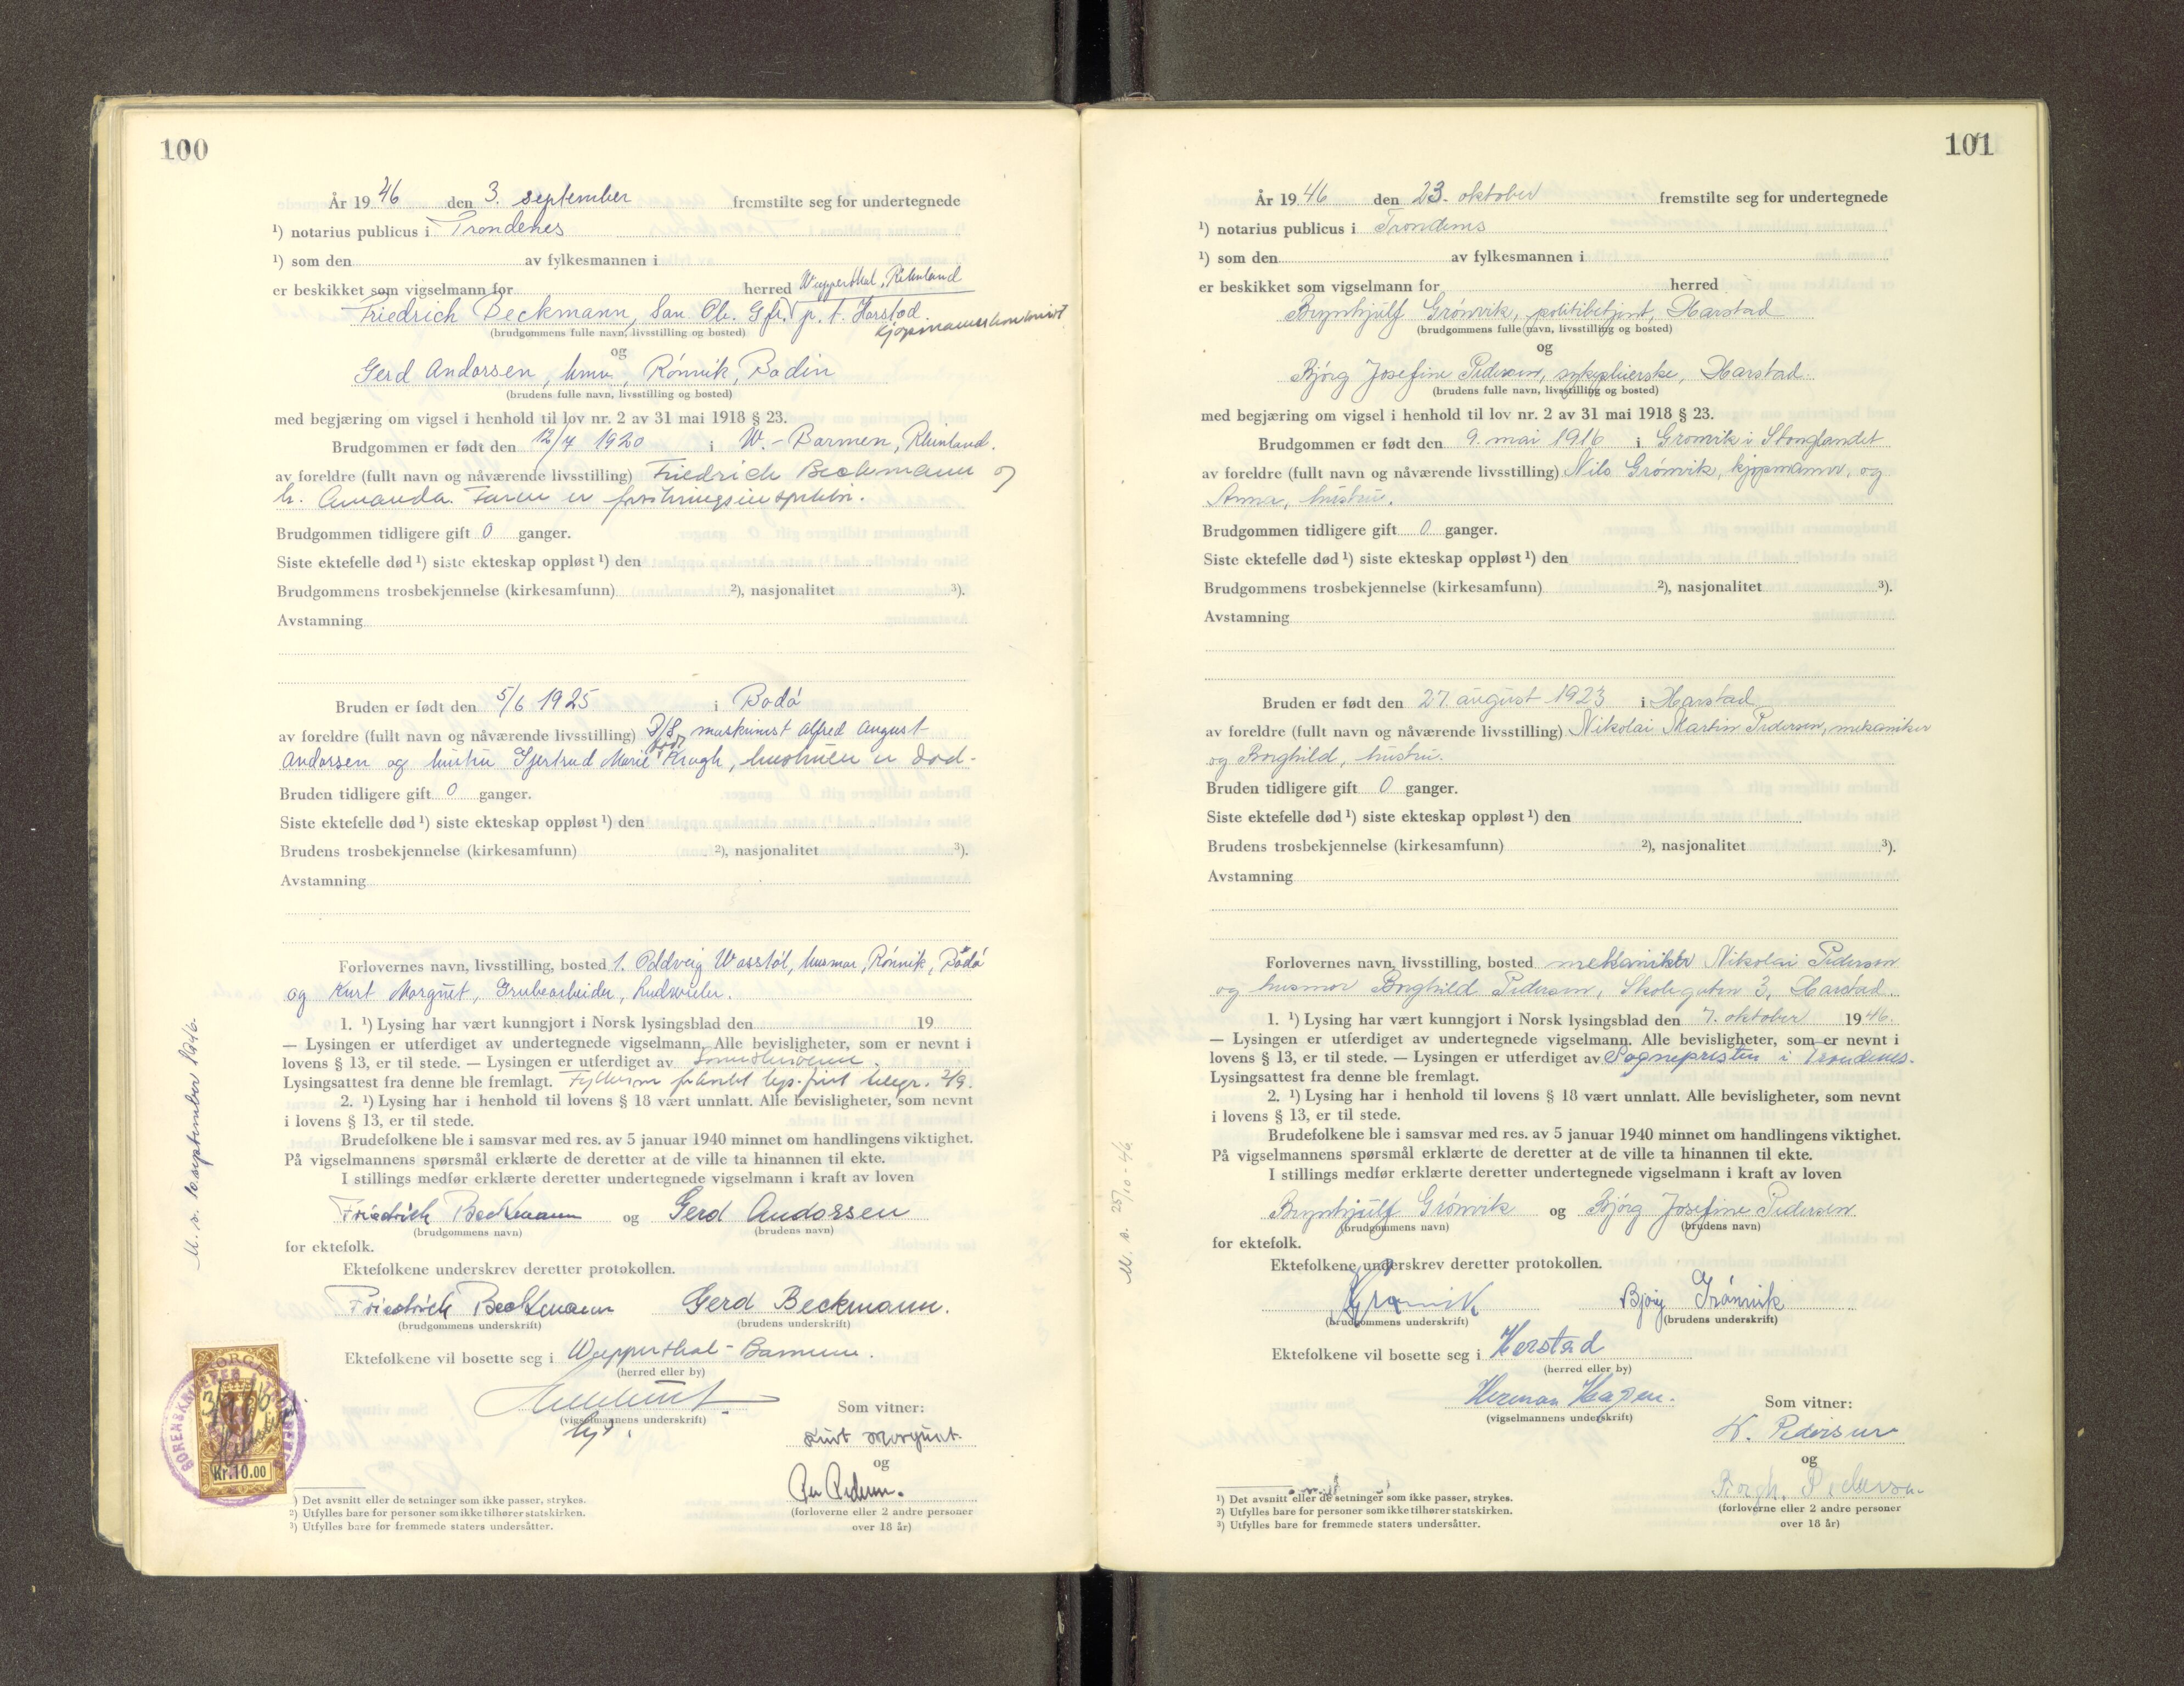 100
År 1946 den 3. september fremstilte seg for undertegnede
¹) notarius publicus i Trondenes
¹) som den av fylkesmannen i
er beskikket som vigselmann for herred Wuppersthal, Rhinland
Friedrich Beckmann, San. Ob. Gfr. p. t. Harstad.
(brudgommens fulle navn, livsstilling og bosted)
og
Gerd Andorsen, hmv., Rönvik, Bodin
(brudens fulle navn, livsstilling og bosted)
med begjæring om vigsel i henhold til lov nr. 2 av 31 mai 1918 § 23.
Brudgommen er født den 12/7 1920 i W.-Barmen, Rheinland.
av foreldre (fullt navn og nåværende livsstilling) Friedrich Beckmann og
h. Amanda. Faren er
Brudgommen tidligere gift 0 ganger.
Siste ektefelle død ¹) siste ekteskap oppløst ¹) den
Brudgommens trosbekjennelse (kirkesamfunn) ²), nasjonalitet ³).
Avstamning
Bruden er født den 5/6 1925 i Bodó
av foreldre (fullt navn og nåværende livsstilling) D/S maskinist Alfred August
Andorsen og hustru Gjertrud Marie født Krogh, hustruen er død.
Bruden tidligere gift 0 ganger.
Siste ektefelle død ¹) siste ekteskap oppløst ¹) den
Brudens trosbekjennelse (kirkesamfunn) ²), nasjonalitet ³).
Avstamning
Forlovernes navn, livsstilling, bosted 1. husmor, Rönvik, Bodó
og Kurt Morgnet, Grubearbeider,
1. ¹) Lysing har vært kunngjort i Norsk lysingsblad den 19
— Lysingen er utferdiget av undertegnede vigselmann. Alle bevisligheter, som er nevnt i
lovens § 13, er til stede. — Lysingen er utferdiget av
Lysingsattest fra denne ble fremlagt. telegr. 2/9.
2. ¹) Lysing har i henhold til lovens § 18 vært unnlatt. Alle bevisligheter, som nevnt
i lovens § 13, er til stede.
Brudefolkene ble i samsvar med res. av 5 januar 1940 minnet om handlingens viktighet.
På vigselmannens spørsmål erklærte de deretter at de ville ta hinannen til ekte.
I stillings medfør erklærte deretter undertegnede vigselmann i kraft av loven
Friedrich Beckmann og Gerd Andorsen
(brudgommens navn) (brudens navn)
for ektefolk.
Ektefolkene underskrev deretter protokollen.
Friedrich Beckmann Gerd Beckmann.
(brudgommens underskrift) (brudens underskrift)
Ektefolkene vil bosette seg i Wuppersthal-Barmen.
(herred eller by)
Som vitner:
(vigselmannens underskrift)
Kurt Morgnet.
og
Per Pedersen.
(forloverne eller 2 andre personer
over 18 år)
M. s. 10. september 1946.
NORGE
SORENSKRIVEREN I TRONDENES
3/9 46
Kr. 10.00
¹) Det avsnitt eller de setninger som ikke passer, strykes.
²) Utfylles bare for personer som ikke tilhører statskirken.
³) Utfylles bare for fremmede staters undersåtter.
101
År 1946 den 23. oktober fremstilte seg for undertegnede
¹) notarius publicus i Trondenes
¹) som den av fylkesmannen i
er beskikket som vigselmann for herred
Brynhjulf Grönvik, politibetjent, Harstad
(brudgommens fulle navn, livsstilling og bosted)
og
Bjórg Josefine Pedersen, sykepleierske, Harstad.
(brudens fulle navn, livsstilling og bosted)
med begjæring om vigsel i henhold til lov nr. 2 av 31 mai 1918 § 23.
Brudgommen er født den 9. mai 1916 i Grönvik i Stonglandet
av foreldre (fullt navn og nåværende livsstilling) Nils Grönvik, kjøpmann, og
Anna, hustru.
Brudgommen tidligere gift 0 ganger.
Siste ektefelle død ¹) siste ekteskap oppløst ¹) den
Brudgommens trosbekjennelse (kirkesamfunn) ²), nasjonalitet ³).
Avstamning
Bruden er født den 27. august 1923 i Harstad
av foreldre (fullt navn og nåværende livsstilling) Nikolai Martin Pedersen, mekaniker
og Borghild, hustru.
Bruden tidligere gift 0 ganger.
Siste ektefelle død ¹) siste ekteskap oppløst ¹) den
Brudens trosbekjennelse (kirkesamfunn) ²), nasjonalitet ³).
Avstamning
Forlovernes navn, livsstilling, bosted mekaniker Nikolai Pedersen
og husmor Borghild Pedersen, Skolegaten 3, Harstad.
1. ¹) Lysing har vært kunngjort i Norsk lysingsblad den 7. oktober 1946.
— Lysingen er utferdiget av undertegnede vigselmann. Alle bevisligheter, som er nevnt i
lovens § 13, er til stede. — Lysingen er utferdiget av Sognepresten i Trondenes.
Lysingsattest fra denne ble fremlagt.
2. ¹) Lysing har i henhold til lovens § 18 vært unnlatt. Alle bevisligheter, som nevnt
i lovens § 13, er til stede.
Brudefolkene ble i samsvar med res. av 5 januar 1940 minnet om handlingens viktighet.
På vigselmannens spørsmål erklærte de deretter at de ville ta hinannen til ekte.
I stillings medfør erklærte deretter undertegnede vigselmann i kraft av loven
Brynhjulf Grönvik og Bjórg Josefine Pedersen
(brudgommens navn) (brudens navn)
for ektefolk.
Ektefolkene underskrev deretter protokollen.
Grønvik Bjórg Grönvik
(brudgommens underskrift) (brudens underskrift)
Ektefolkene vil bosette seg i Harstad
(herred eller by)
Herman Hagen. Som vitner:
(vigselmannens underskrift)
N. Pedersen
og
Borgh. Pedersen
(forloverne eller 2 andre personer
over 18 år)
M. s. 25/10-46
¹) Det avsnitt eller de setninger som ikke passer, strykes.
²) Utfylles bare for personer som ikke tilhører statskirken.
³) Utfylles bare for fremmede staters undersåtter.